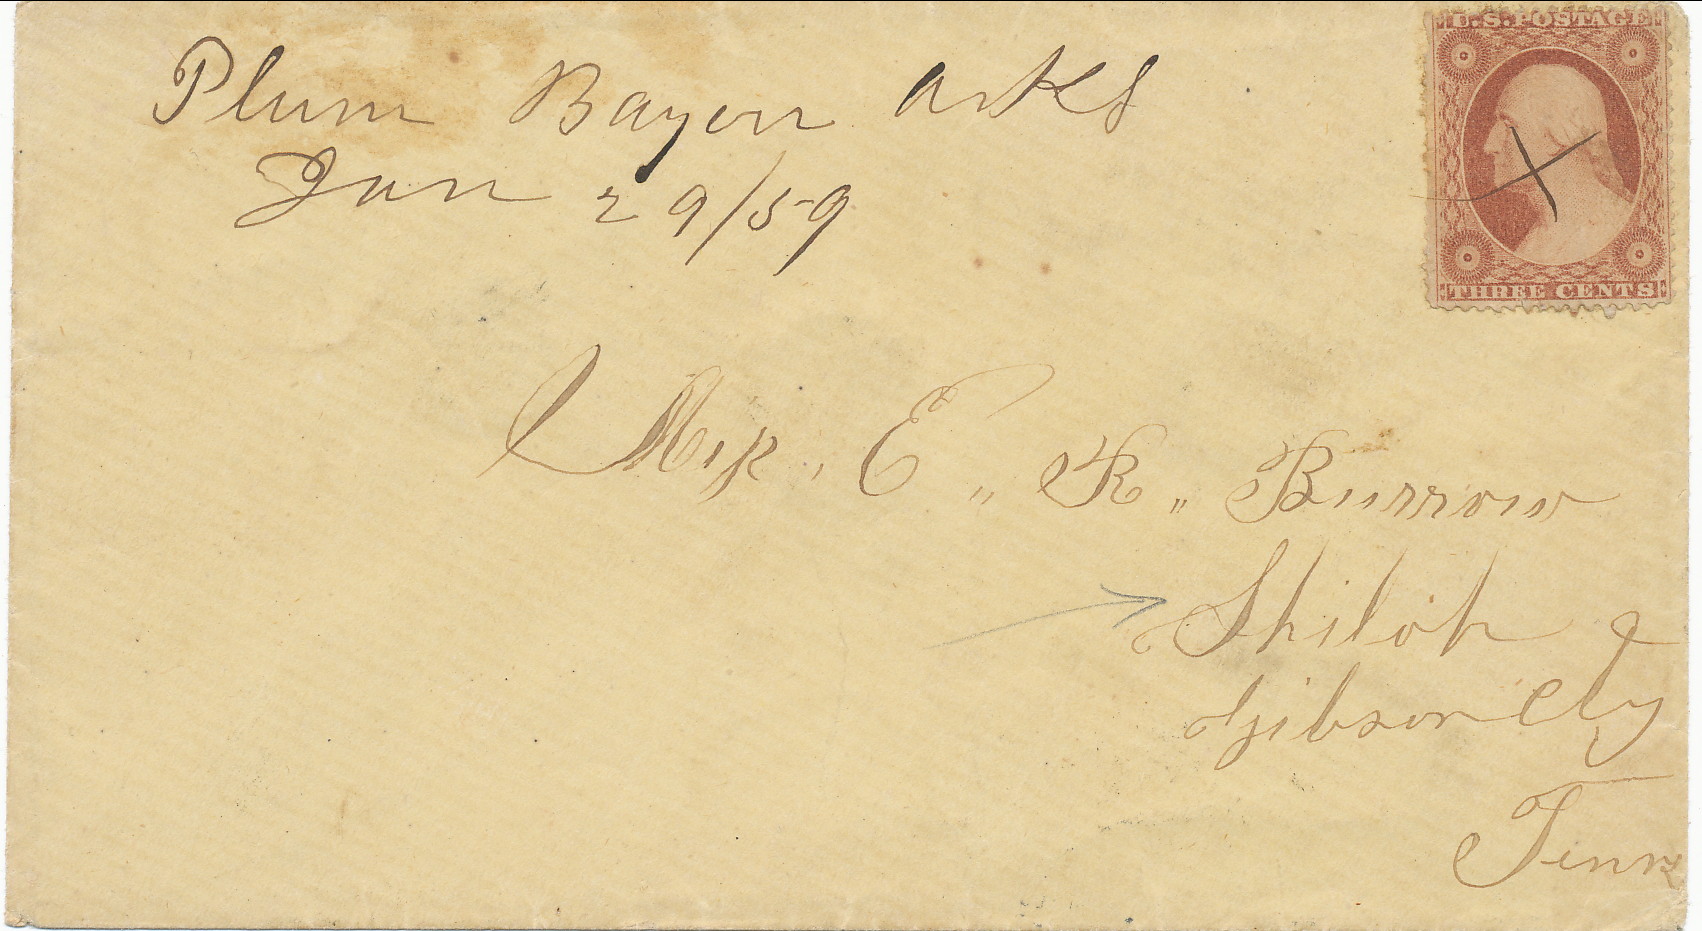 Plum Bayou Arks
Jan 29/59
U.S. POSTAGE
THREE CENTS
Miss. E. R. Burrow
Shiloh
Gibson Cty
Tenn